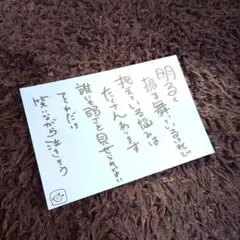 明るく
振る舞っているけれど
抱えている悩みは
たくさんあります
誰にも弱さを見せられない
てくれだけ
笑いながら泣きそう